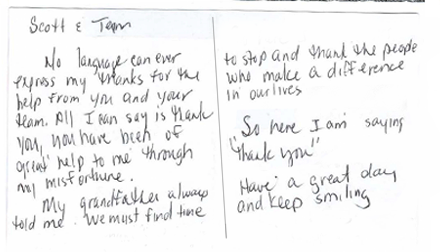 Scott & Team
No language can ever
express my thanks for the
help from you and your
team. All I can say is thank
you, you have been of
great help to me through
my misfortune.
My grandfather always
told me we must find time
to stop and thank the people
who make a difference
in our lives
"So here I am saying
"thank you"
Have a great day
and keep smiling